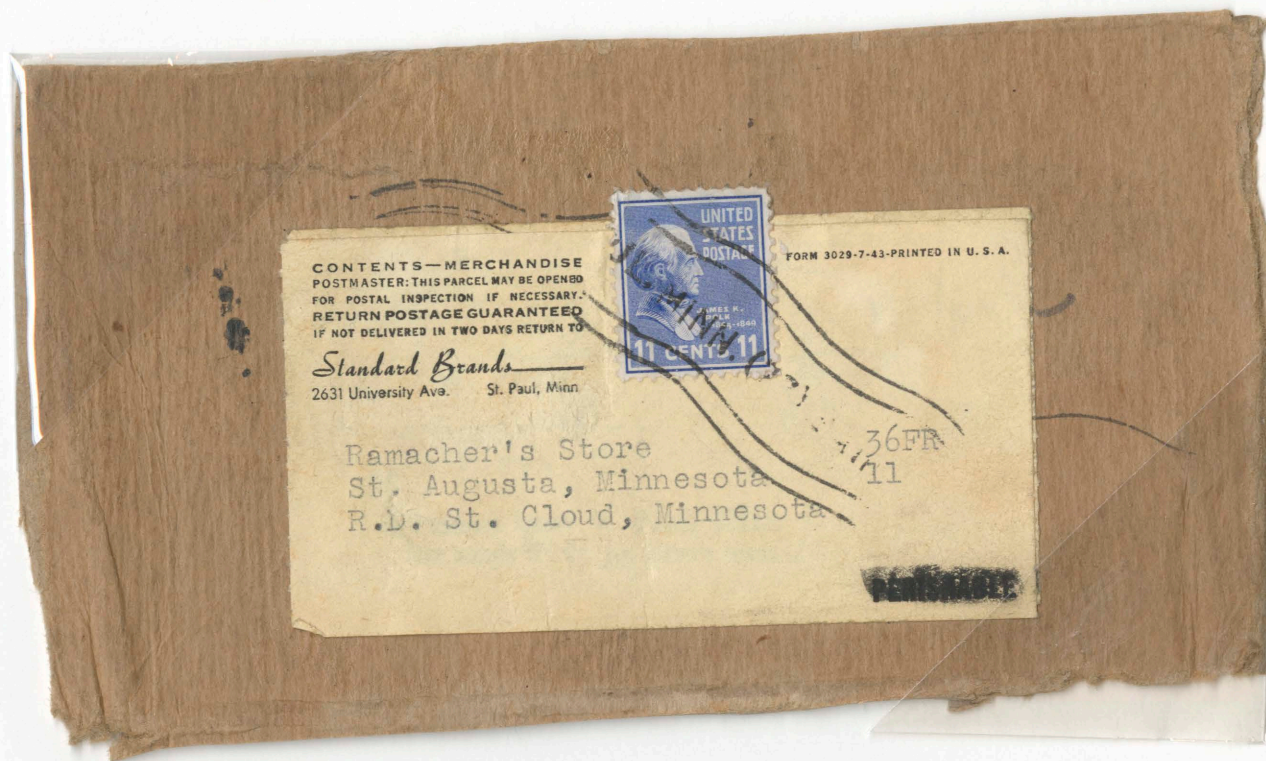 CONTENTS—MERCHANDISE
POSTMASTER: THIS PARCEL MAY BE OPENED
FOR POSTAL INSPECTION IF NECESSARY.
RETURN POSTAGE GUARANTEED
IF NOT DELIVERED IN TWO DAYS RETURN TO
Standard Brands
2631 University Ave. St. Paul, Minn
UNITED
STATES
POSTAGE
JAMES K.
POLK
11 CENTS 11
MINN.
FORM 3029-7-43-PRINTED IN U. S. A.
36FR
11
Ramacher's Store
St. Augusta, Minnesota
R.D. St. Cloud, Minnesota
PERISHABLE